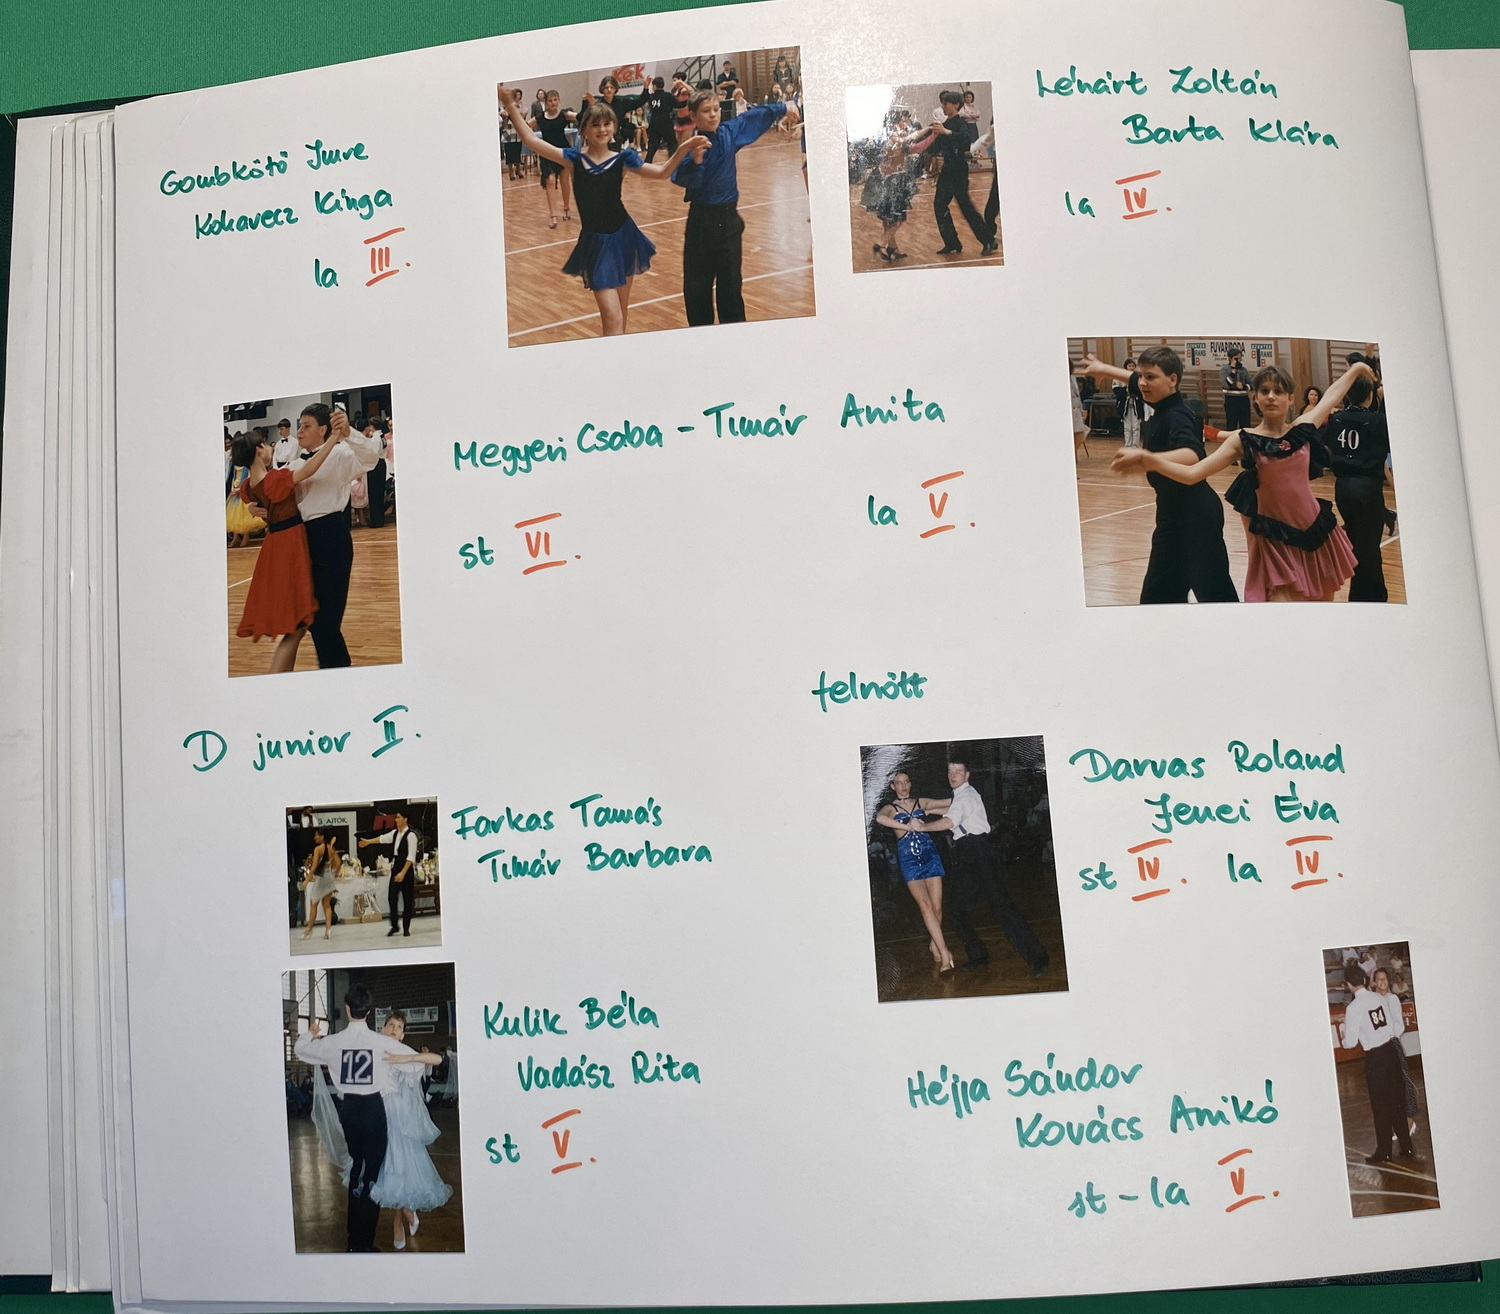 Gombkötő Imre
Kokavecz Kinga
la III.
Kék
94
Lénárt Zoltán
Barta Klára
la IV.
Megyeri Csaba - Tímár Anita
st VI.
la V.
FUVARIRODA
TRANS
TRANS
40
D junior II.
Farkas Tamás
Tímár Barbara
AJTÓK
Kulik Béla
Vadász Rita
st V.
12
felnőtt
Darvas Roland
Jenei Éva
st IV. la IV.
Héjja Sándor
Kovács Anikó
st - la V.
84